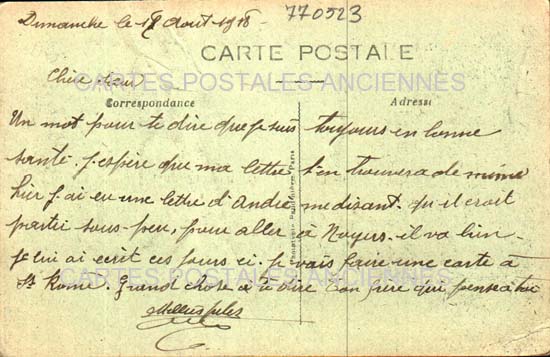 Dimanche le 18 Août 1918
770523
CARTE POSTALE
Chère
CARTES POSTALES ANCIENNES
Correspondance
Adresse
Un mot pour te dire que je suis toujours en bonne
santé. j'espère que ma lettre t'en trouvera de même
hier j'ai eu une lettre d'André me disant qu'il croit
partir sous-peu, pour aller à Noyers. il va bien
je lui ai ecrit ces jours ci. je vais faire une carte à
CARTES POSTALES ANCIENNES
St Rome. Grand chose à te dire Ton frère qui pense a toi